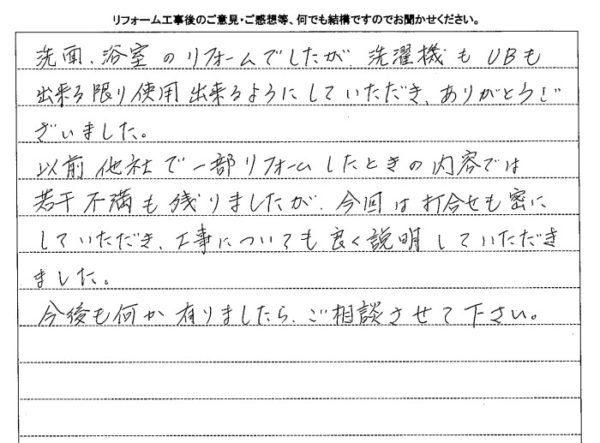 リフォーム工事後のご意見・ご感想等、何でも結構ですのでお聞かせください。
洗面、浴室のリフォームでしたが、洗濯機もUBも
出来る限り使用出来るようにしていただき、ありがとうご
ざいました。
以前他社で一部リフォームしたときの内容では
若干不満も残りましたが、今回は打合せも密に
していただき、工事についても良く説明していただき
ました。
今後も何か有りましたら、ご相談させて下さい。